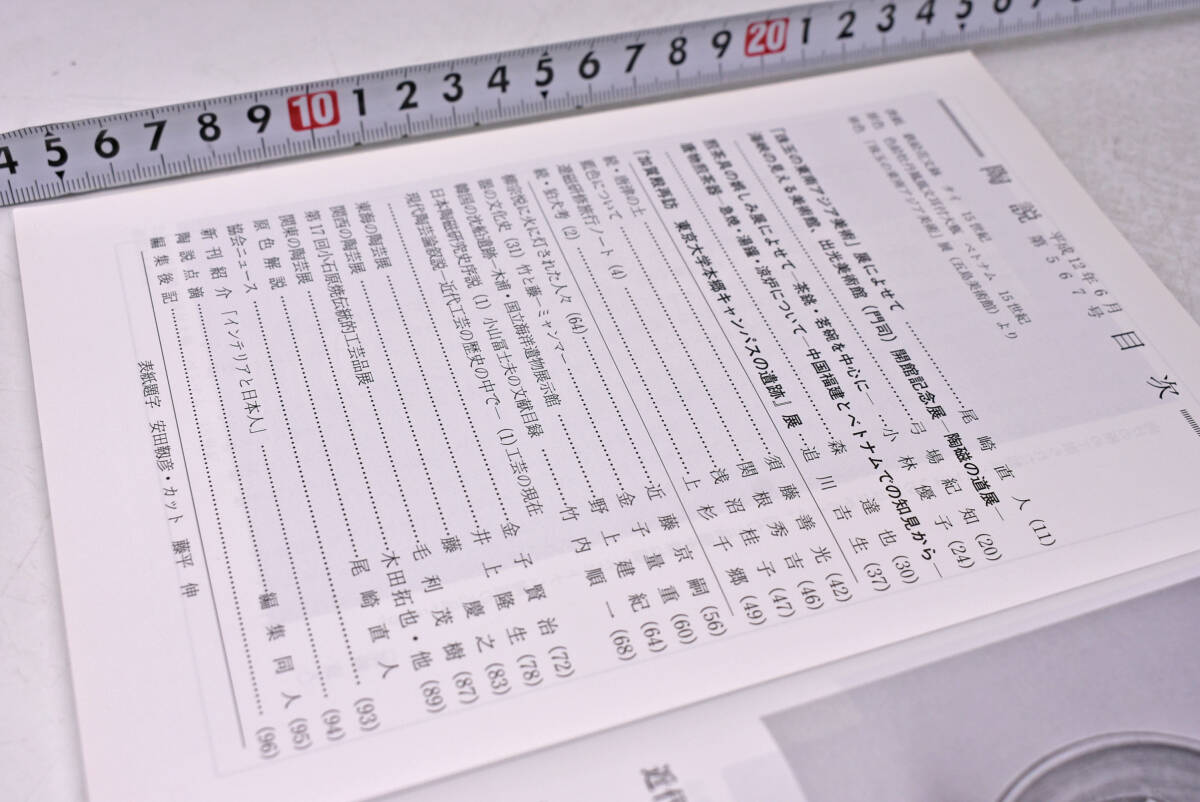 陶説 第567号 平成12年6月 目次
15世紀
「珠玉の東南アジア美術」展によせて 尾崎直人 (11)
海峡の見える美術館、出光美術館(門司)開館記念展―陶磁の道展― 弓場紀知 (20)
煎茶具の親しみ展によせて―茶銚・茗碗を中心に― 小林優子 (24)
唐物煎茶器―急焼・湯鑵・涼炉について―中国福建とベトナムでの知見から― 森達也 (30)
「加賀殿再訪 東京大学本郷キャンパスの遺跡」展 追川吉生 (37)
続・唐津の土 須藤善光 (42)
藍色について 関根秀吉 (46)
遼磁研修旅行ノート(4) 浅沼桂子 (47)
続・狛犬考(2) 上杉千郷 (49)
柳宗悦に火に灯された人々(64) 近藤京嗣 (56)
服の文化史(31)竹と藤・ミャンマー 金子量重 (60)
韓国の沈船遺跡―木浦・国立海洋遺物展示館 野上建紀 (64)
日本陶磁研究史序説(1)小山冨士夫の文献目録 竹内順一 (68)
現代陶芸論叙説―近代工芸の歴史の中で―(1)工芸の現在 金子賢治 (72)
東海の陶芸展 井上隆生 (78)
関西の陶芸展 藤慶之 (83)
第17回小石原焼伝統的工芸品展 毛利茂樹 (87)
関東の陶芸展 木田拓也・他 (89)
原色解説 尾崎直人
協会ニュース (93)
新刊紹介「インテリアと日本人」 (94)
陶説点滴 編集同人 (95)
編集後記 (96)
表紙題字 安田靫彦・カット 藤平伸
近代
4 5 6 7 8 9 10 1 2 3 4 5 6 7 8 9 20 1 2 3 4 5 6 7